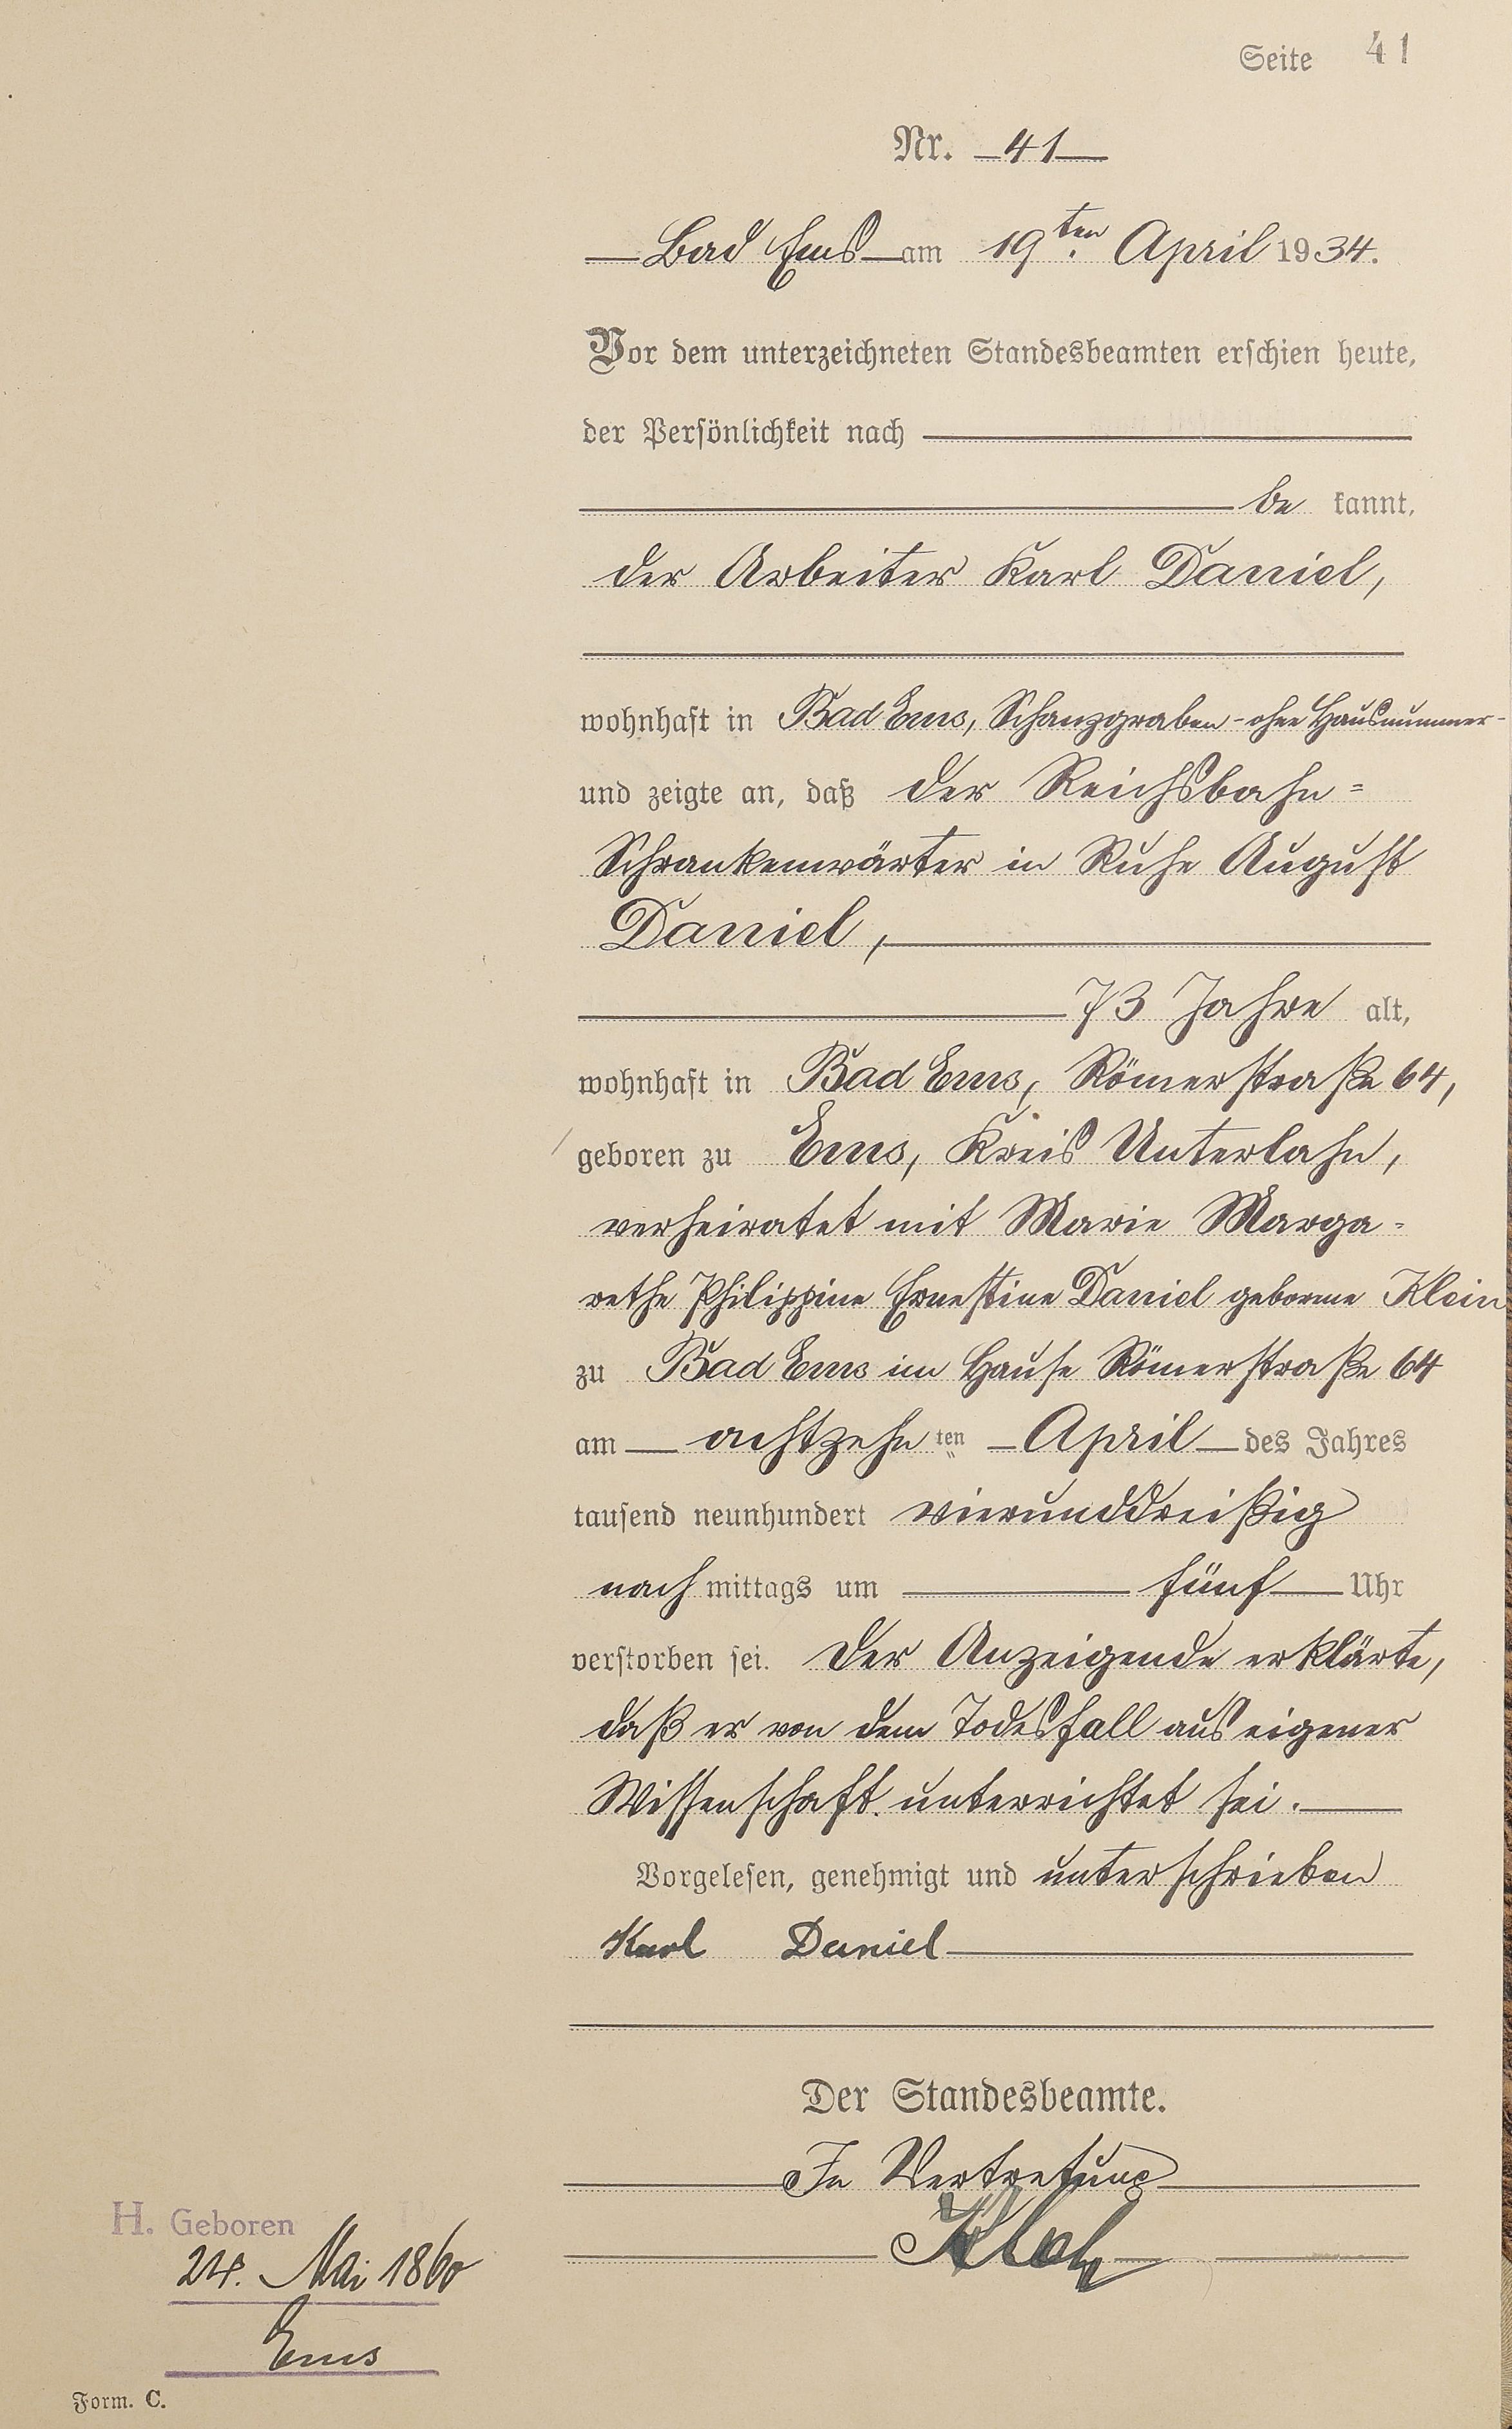 Seite 41
Nr. 41
Bad Ems am 19ten. April 1934.
Vor dem unterzeichneten Standesbeamten erschien heute,
der Persönlichkeit nach
be kannt,
der Arbeiter Karl Daniel,
wohnhaft in Bad Ems, Schanzgraben - ohne Hausnummer -
und zeigte an, daß der Reichsbahn=
Schrankenwärter in Ruhe August
Daniel,
73 Jahre alt,
wohnhaft in Bad Ems, Römerstraße 64,
geboren zu Ems, Kreis Unterlahn,
verheiratet mit Marie Marga=
rethe Philippine Ernestine Daniel geborene Klein
zu Bad Ems im Hause Römerstraße 64
am achtzehn ten April des Jahres
tausend neunhundert vierunddreißig
nach mittags um fünf Uhr
verstorben sei. Der Anzeigende erklärte,
daß er von dem Todesfall aus eigener
Wissenschaft unterrichtet sei.
Vorgelesen, genehmigt und unterschrieben
Karl Daniel
Der Standesbeamte.
In Vertretung
H. Geboren
24. Mai 1860
Ems
Form. C.